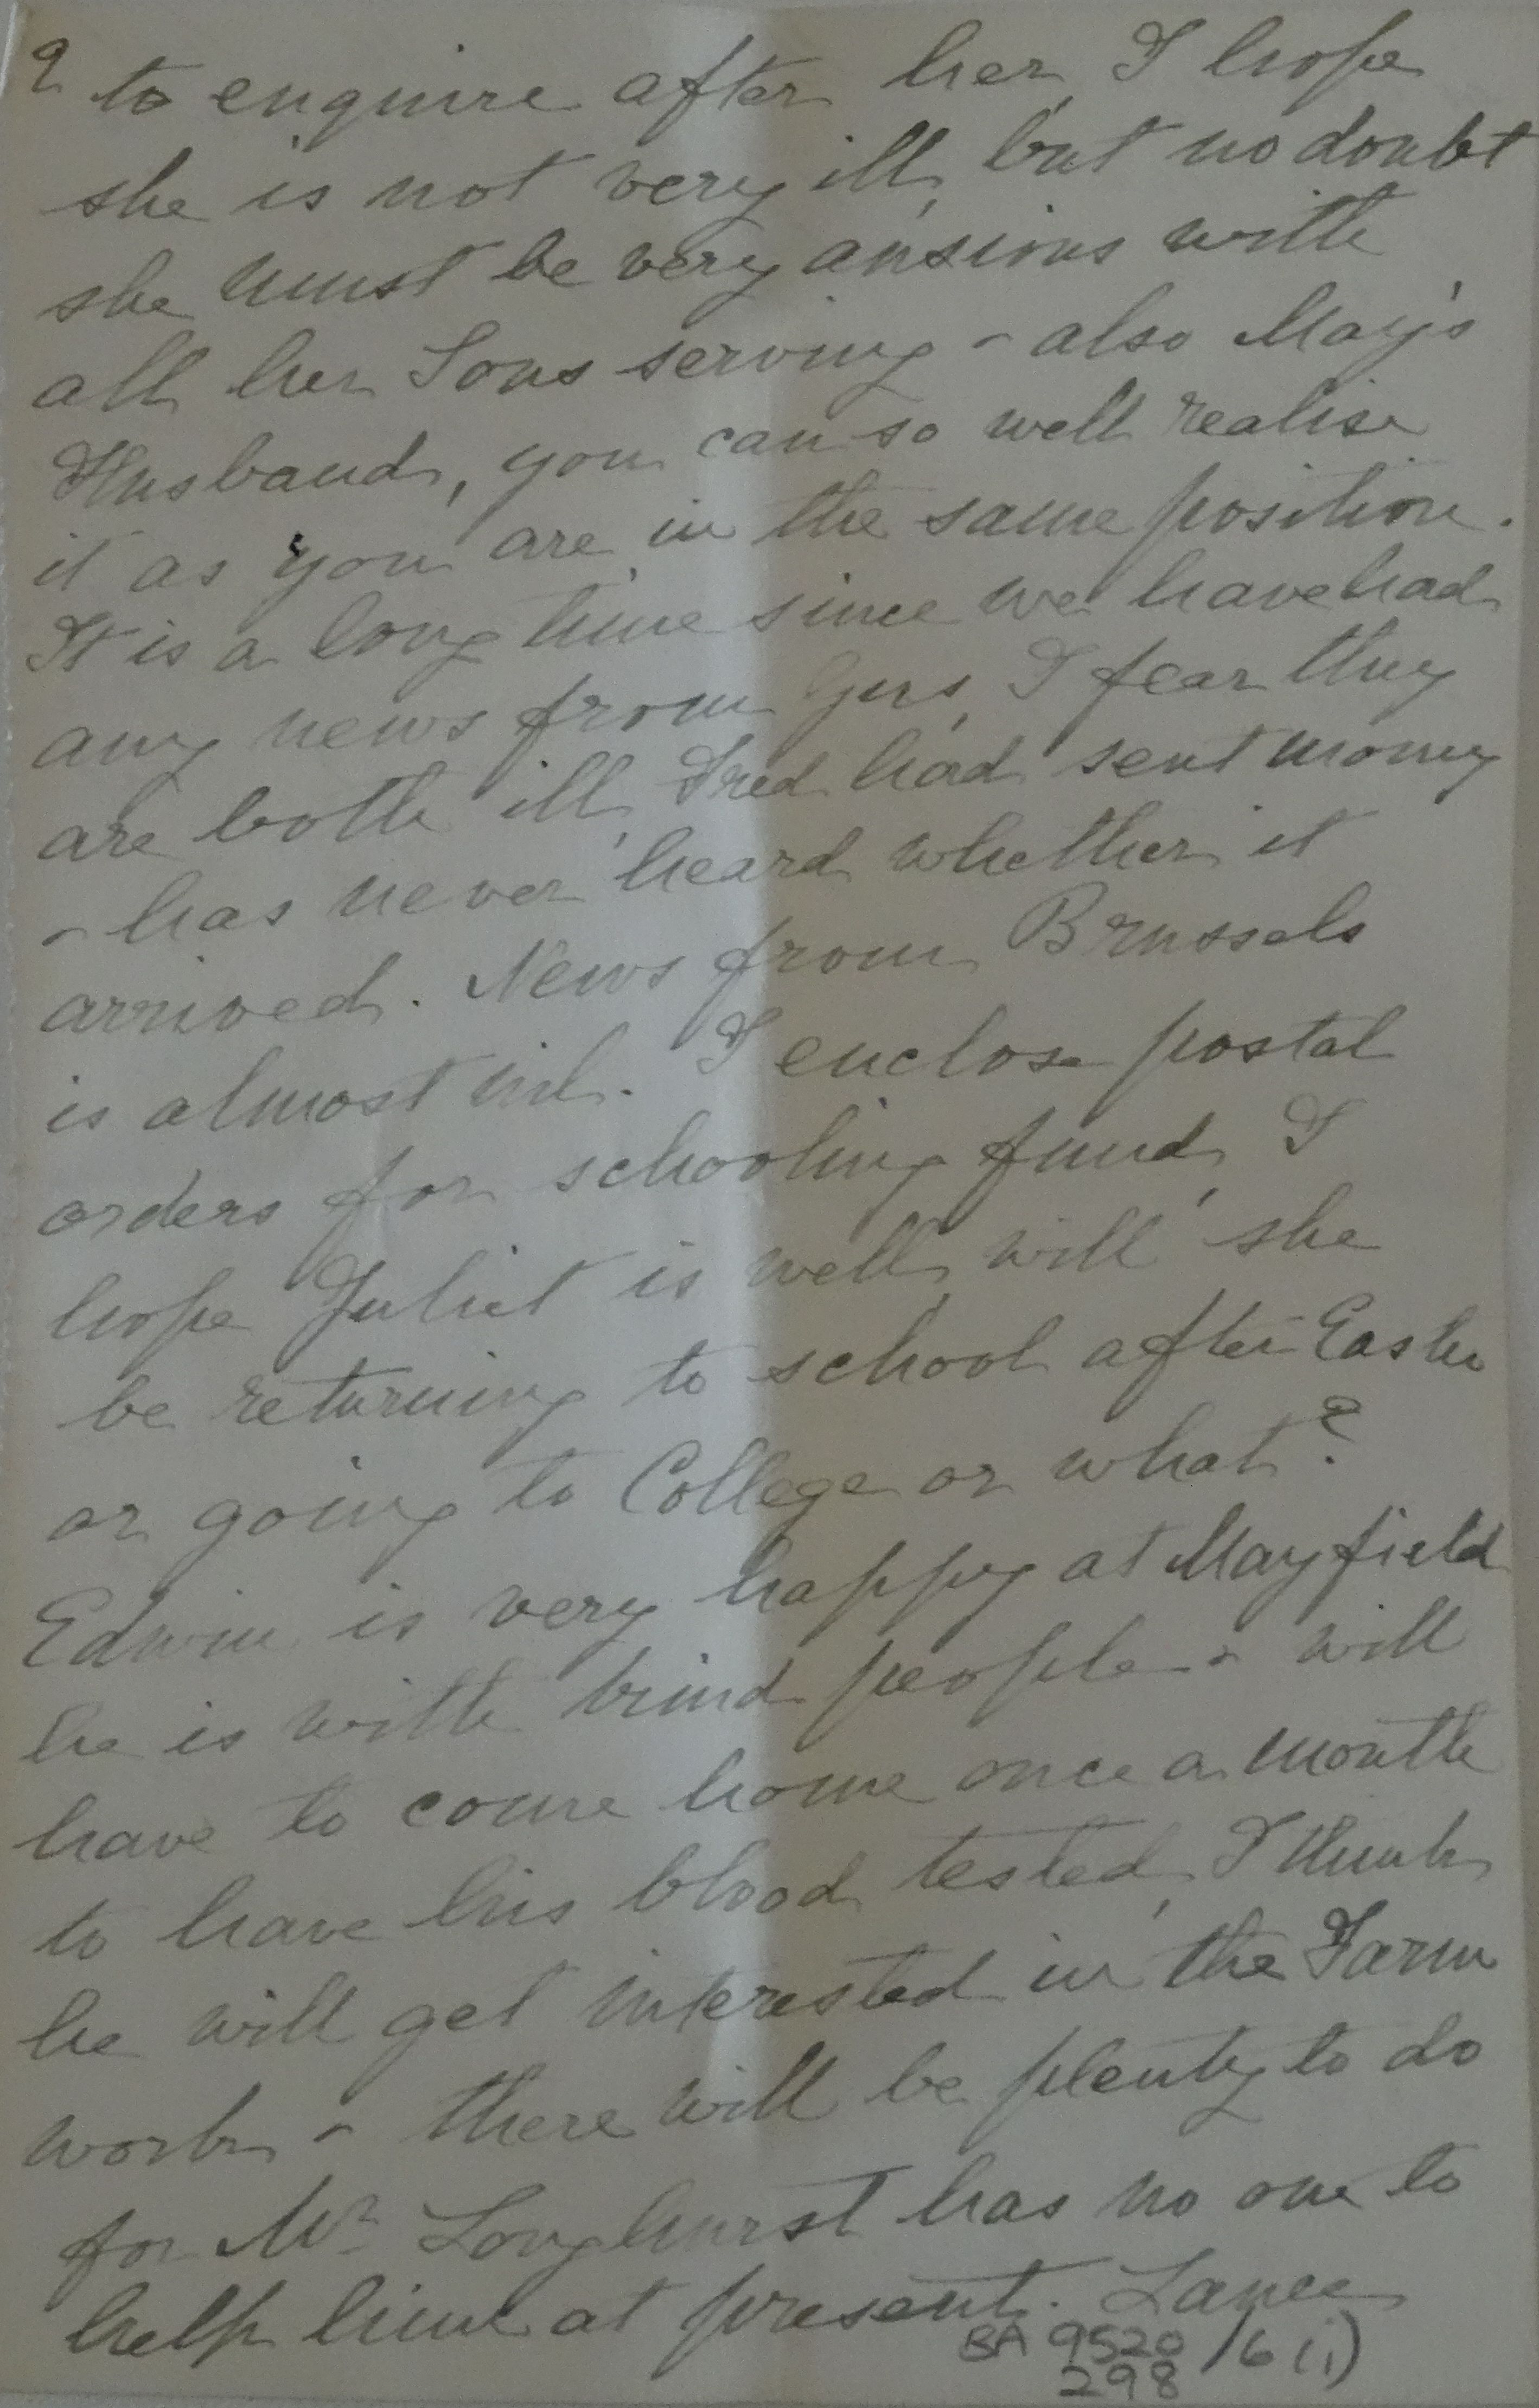 2 to enquire after her, I hope
she is not very ill, but no doubt
she must be very anxious with
all her Sons serving - also May's
Husband, you can so well realise
it as you are in the same position.
It is a long time since we have had
any news from Gus, I fear they
are both ill, Fred had sent money
- has never heard whether it
arrived. News from Brussels
is almost nil. I enclose postal
orders for schooling fund, I
hope Juliet is well, will she
be returning to school after Easter
or going to College or what?
Edwin is very happy at Mayfield
he is with kind people - will
have to come home once a month
to have his blood tested, I think
he will get interested in the Farm
work - there will be plenty to do
for Mr Longhurst has no one to
help him at present. Lance
BA 9520/6(i)
298